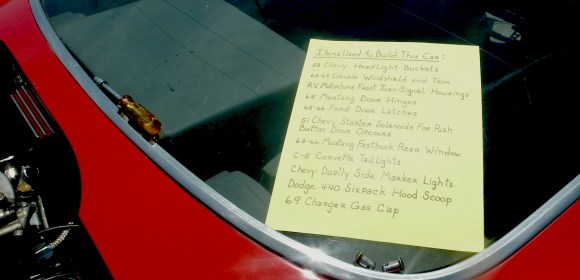 Items Used to Build This Car:
Chevy Headlight Buckets
Windshield and Trim
RV Motorhome Front Turn Signal Housings
Mustang Door Hinges
65-66 Ford Door Latches
51 Chevy Starter Solenoids For Push
Button Door Openers
65-66 Mustang Fastback Rear Window
C-5 Corvette Taillights
Chevy Dually Side Marker Lights
Dodge 440 Sixpack Hood Scoop
69 Charger Gas Cap